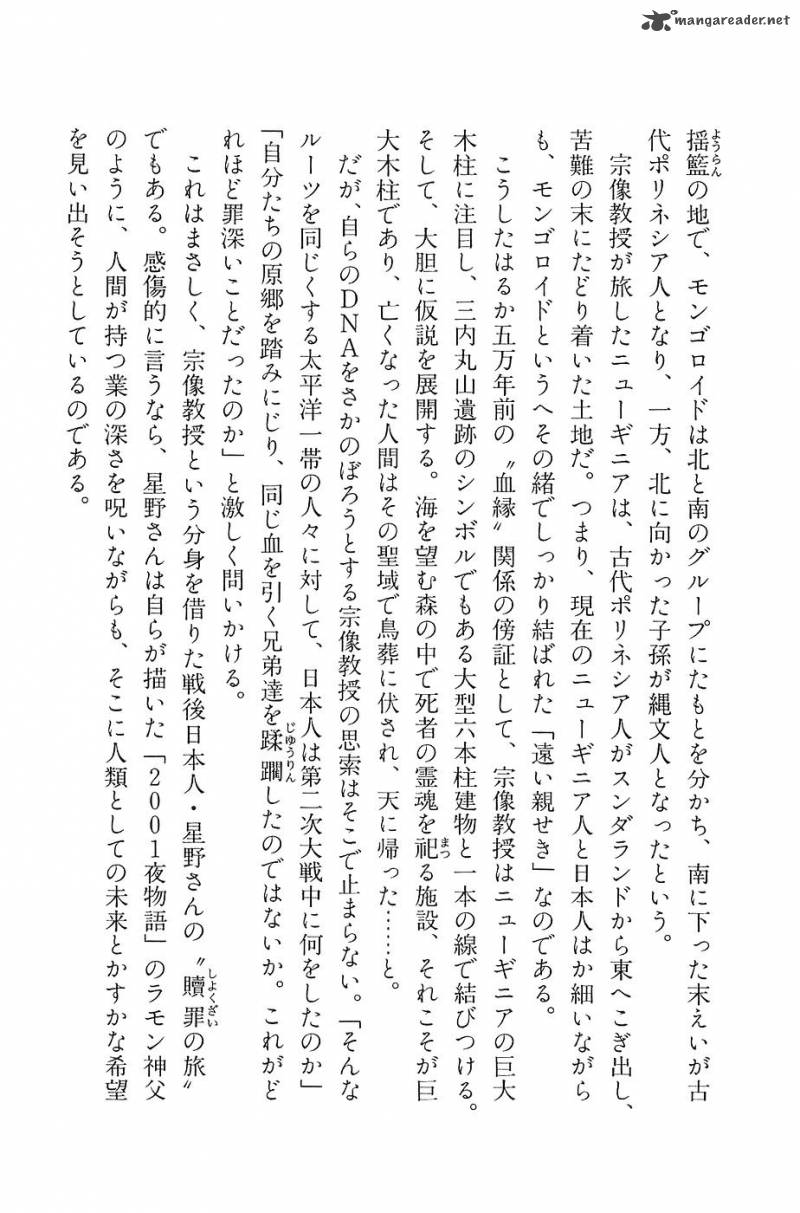 mangareader.net
揺籃の地で、モンゴロイドは北と南のグループにたもとを分かち、南に下った末えいが古
ようらん
代ポリネシア人となり、一方、北に向かった子孫が縄文人となったという。
宗像教授が旅したニューギニアは、古代ポリネシア人がスンダランドから東へこぎ出し、
苦難の末にたどり着いた土地だ。つまり、現在のニューギニア人と日本人はか細いながら
も、モンゴロイドというへその緒でしっかり結ばれた「遠い親せき」なのである。
こうしたはるか五万年前の〝血縁〟関係の傍証として、宗像教授はニューギニアの巨大
木柱に注目し、三内丸山遺跡のシンボルでもある大型六本柱建物と一本の線で結びつける。
そして、大胆に仮説を展開する。海を望む森の中で死者の霊魂を祀る施設、それこそが巨
まつ
大木柱であり、亡くなった人間はその聖域で鳥葬に伏され、天に帰った……と。
だが、自らのDNAをさかのぼろうとする宗像教授の思索はそこで止まらない。「そんな
ルーツを同じくする太平洋一帯の人々に対して、日本人は第二次大戦中に何をしたのか」
「自分たちの原郷を踏みにじり、同じ血を引く兄弟達を蹂躙したのではないか。これがど
じゆうりん
れほど罪深いことだったのか」と激しく問いかける。
これはまさしく、宗像教授という分身を借りた戦後日本人・星野さんの〝贖罪の旅〟
しよくざい
でもある。感傷的に言うなら、星野さんは自らが描いた「2001夜物語」のラモン神父
のように、人間が持つ業の深さを呪いながらも、そこに人類としての未来とかすかな希望
を見い出そうとしているのである。